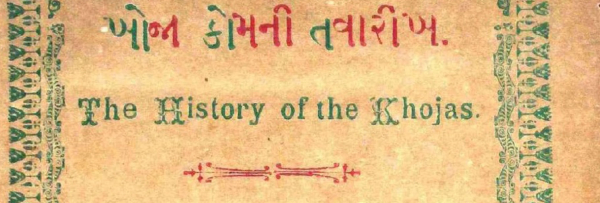 ખોજા કોમની તવારીખ.
The History of the Khojas.